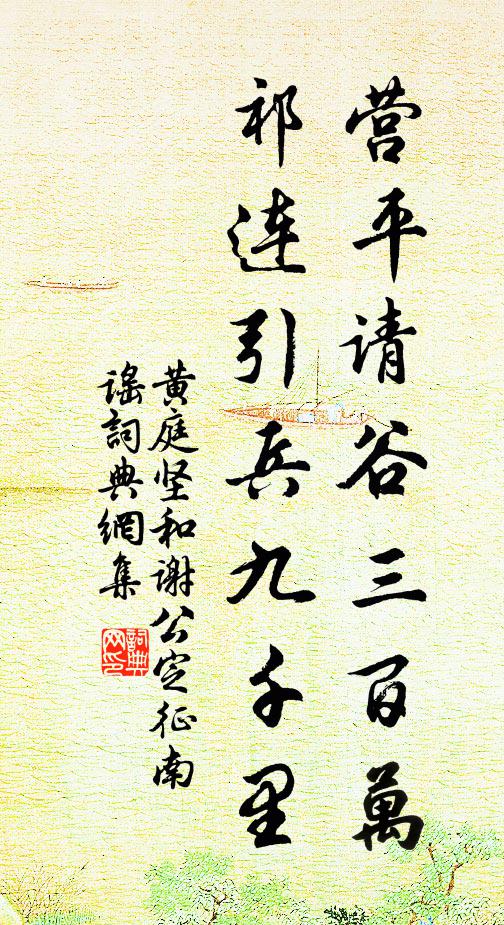 营平请谷三百萬
祁连引兵九千里
黄庭坚和谢公定征南
谣詞典網集
詞典
网印